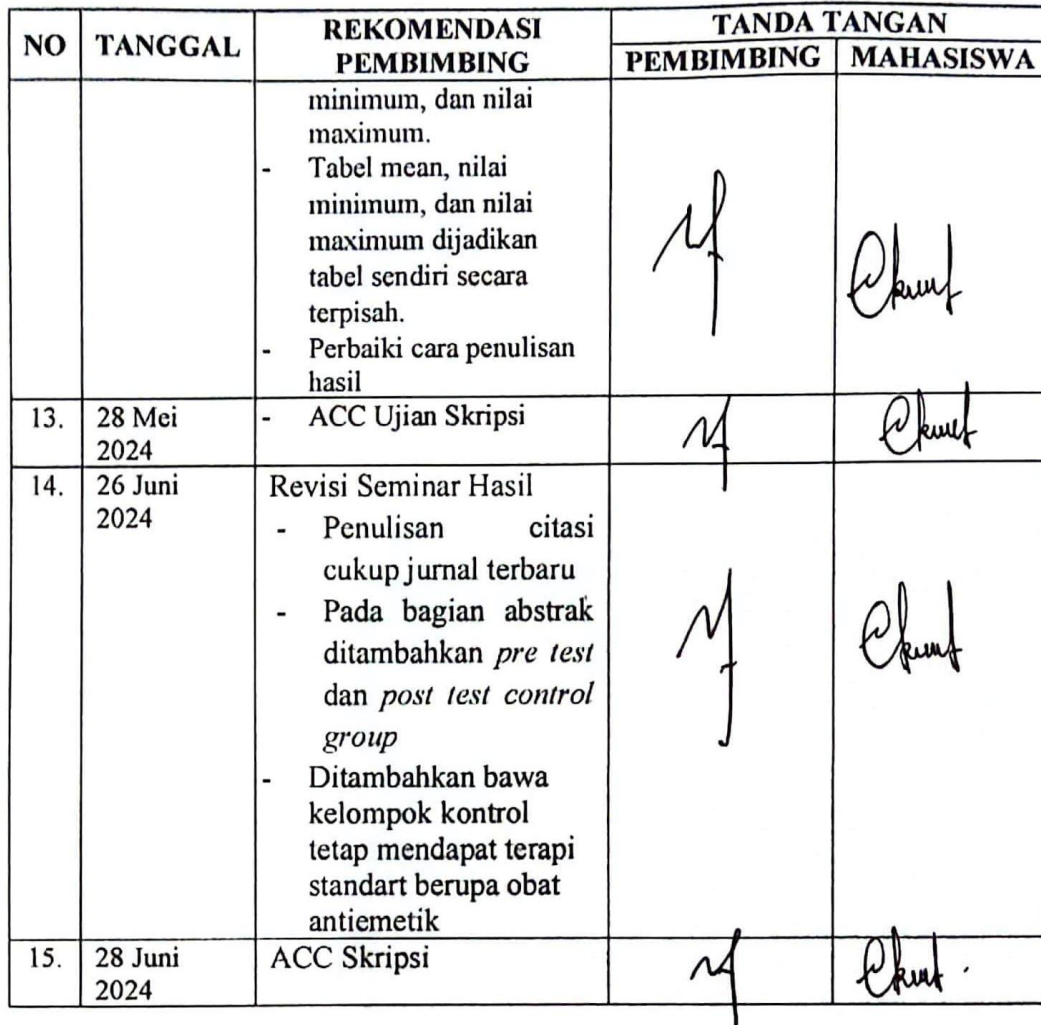 NO TANGGAL REKOMENDASI PEMBIMBING TANDA TANGAN
PEMBIMBING MAHASISWA
minimum, dan nilai
maximum.
- Tabel mean, nilai
minimum, dan nilai
maximum dijadikan
tabel sendiri secara
terpisah.
- Perbaiki cara penulisan
hasil
13. 28 Mei - ACC Ujian Skripsi
2024
14. 26 Juni Revisi Seminar Hasil
2024
- Penulisan citasi
cukup jurnal terbaru
- Pada bagian abstrak
ditambahkan pre test
dan post test control
group
- Ditambahkan bawa
kelompok kontrol
tetap mendapat terapi
standart berupa obat
antiemetik
15. 28 Juni ACC Skripsi
2024